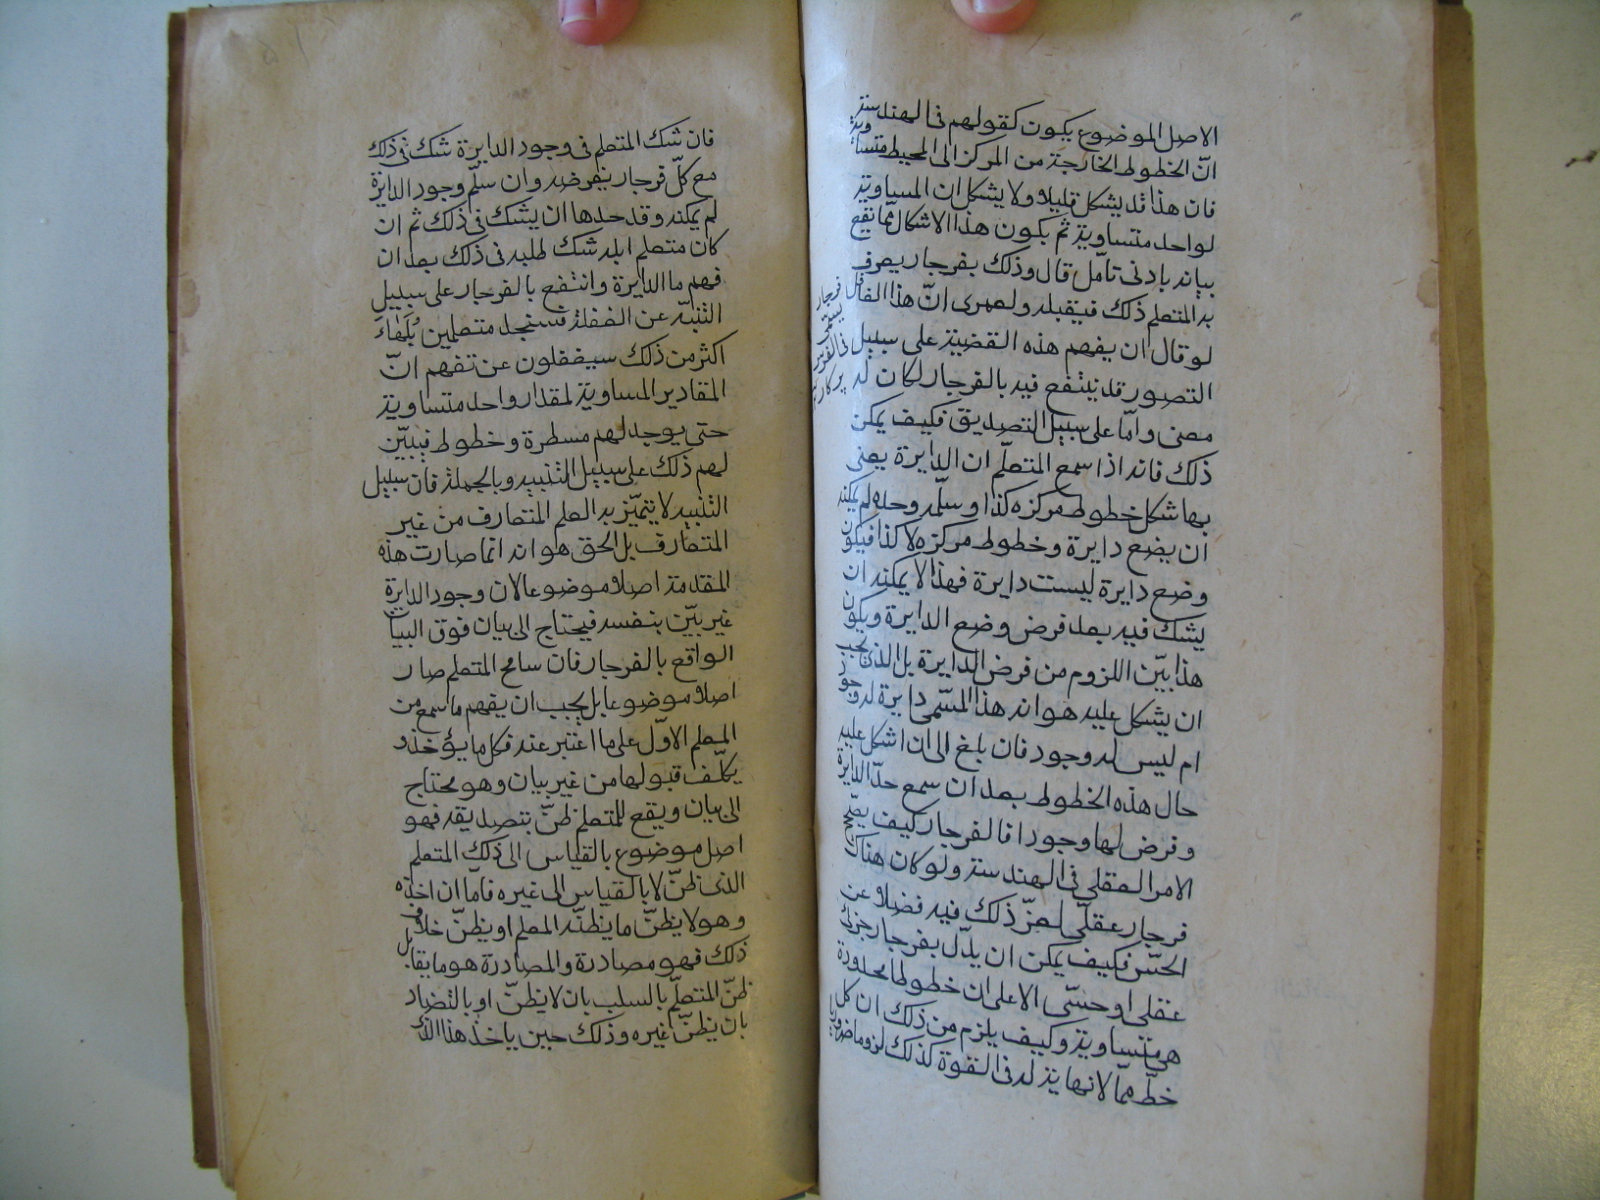 الاصل الموضوع يكون كقولهم فى الهندسة
انّ الخطوط الخارجة من المركز الى المحيط متساوية
فان هذا قد يشكل قليلا ولا يشكل ان المساوية
لواحد متساوية ثم يكون هذا الاشكال ممّا يقع
بيانه بادنى تأمّل قال وذلك بفرجار يعرف
به المتعلم ذلك فيقبله ولعمرى انّ هذا القائل
لو قال ان يفهم هذه القضية على سبيل
التصور قد ينتفع فيه بالفرجار لكان له
معنى وامّا على سبيل التصديق فكيف يمكن
ذلك فانه اذا سمع المتعلّم ان الدايرة يعنى
بها شكل خطوط مركزه كذا وسلّمه وحده لم يمكنه
ان يضع دايرة وخطوط مركزه لا كذا فيكون
وضع دايرة ليست دايرة فهذا لا يمكنه ان
يشك فيه بعد فرض وضع الدايرة ويكون
هذا بيّن اللزوم من فرض الدايرة بل الذى يجب
ان يشكل عليه هو انه هذا المسّمى دايرة له وجود
ام ليس له وجود فان بلغ الى ان اشكل عليه
حال هذه الخطوط بعد ان سمع حدّ الدايرة
وفرض لها وجودا فالفرجار كيف يصّحح
الامر العقلي فى الهندسة ولو كان هناك
فرجار عقلّى لعزّ ذلك فيه فضلا عن
الحسّى فكيف يمكن ان يدّل بفرجار جزئى
عقلى او حسّى الا على ان خطوطا محدودة
هى متساوية وكيف يلزم من ذلك ان كل
خطّ ممّا لا نهاية له فى القوة كذلك لزوما ضروريا
فرجار
فى الفرس
پركار
فان شك المتعلم فى وجود الدايرة شك فى ذلك
مع كلّ فرجار يفرضه وان سلّم وجود الدايرة
لم يمكنه وقد حدها ان يشك فى ذلك ثم ان
كان متعلم ابله شك لطلبه فى ذلك بعد ان
فهم ما الدايرة وانتفع بالفرجار على سبيل
التنبّه عن الغفلة فستجد متعلمين بُلَهاءَ
اكثر من ذلك سيغفلون عن تفهم انّ
المقادير المساوية لمقدار واحد متساوية
حتى يوجد لهم مسطرة وخطوط فيبيّن
لهم ذلك على سبيل التنبيه وبالجملة فان سبيل
التنبيه لا يتميّز به العلم المتعارف من غير
المتعارف بل الحق هو انه انما صارت هذه
المقدمة اصلا موضوعا لان وجود الدايرة
غير بيّن بنفسه فيحتاج الى بيان فوق البيان
الواقع بالفرجار فان سامح المتعلم صار
اصلا موضوعا بل يجب ان يفهم ما سمع من
المعلم الاوّل على ما اعتبر عنه فكل ما يؤخذ
يكلّف قبولها من غير بيان وهو محتاج
الى بيان ويقع للمتعلم ظنّ بتصديقه فهو
اصل موضوع بالقياس الى ذلك المتعلم
الذى ظنّ لا بالقياس الى غيره فامّا ان اخذه
وهو لا يظنّ ما يظنّه المعلم او يظنّ خلاف
ذلك فهو مصادرة والمصادرة هو ما يقابل
ظنّ المتعلّم بالسلب بان لا يظنّ او بالتضاد
بان يظنّ غيره وذلك حين ياخذ هذا الذى